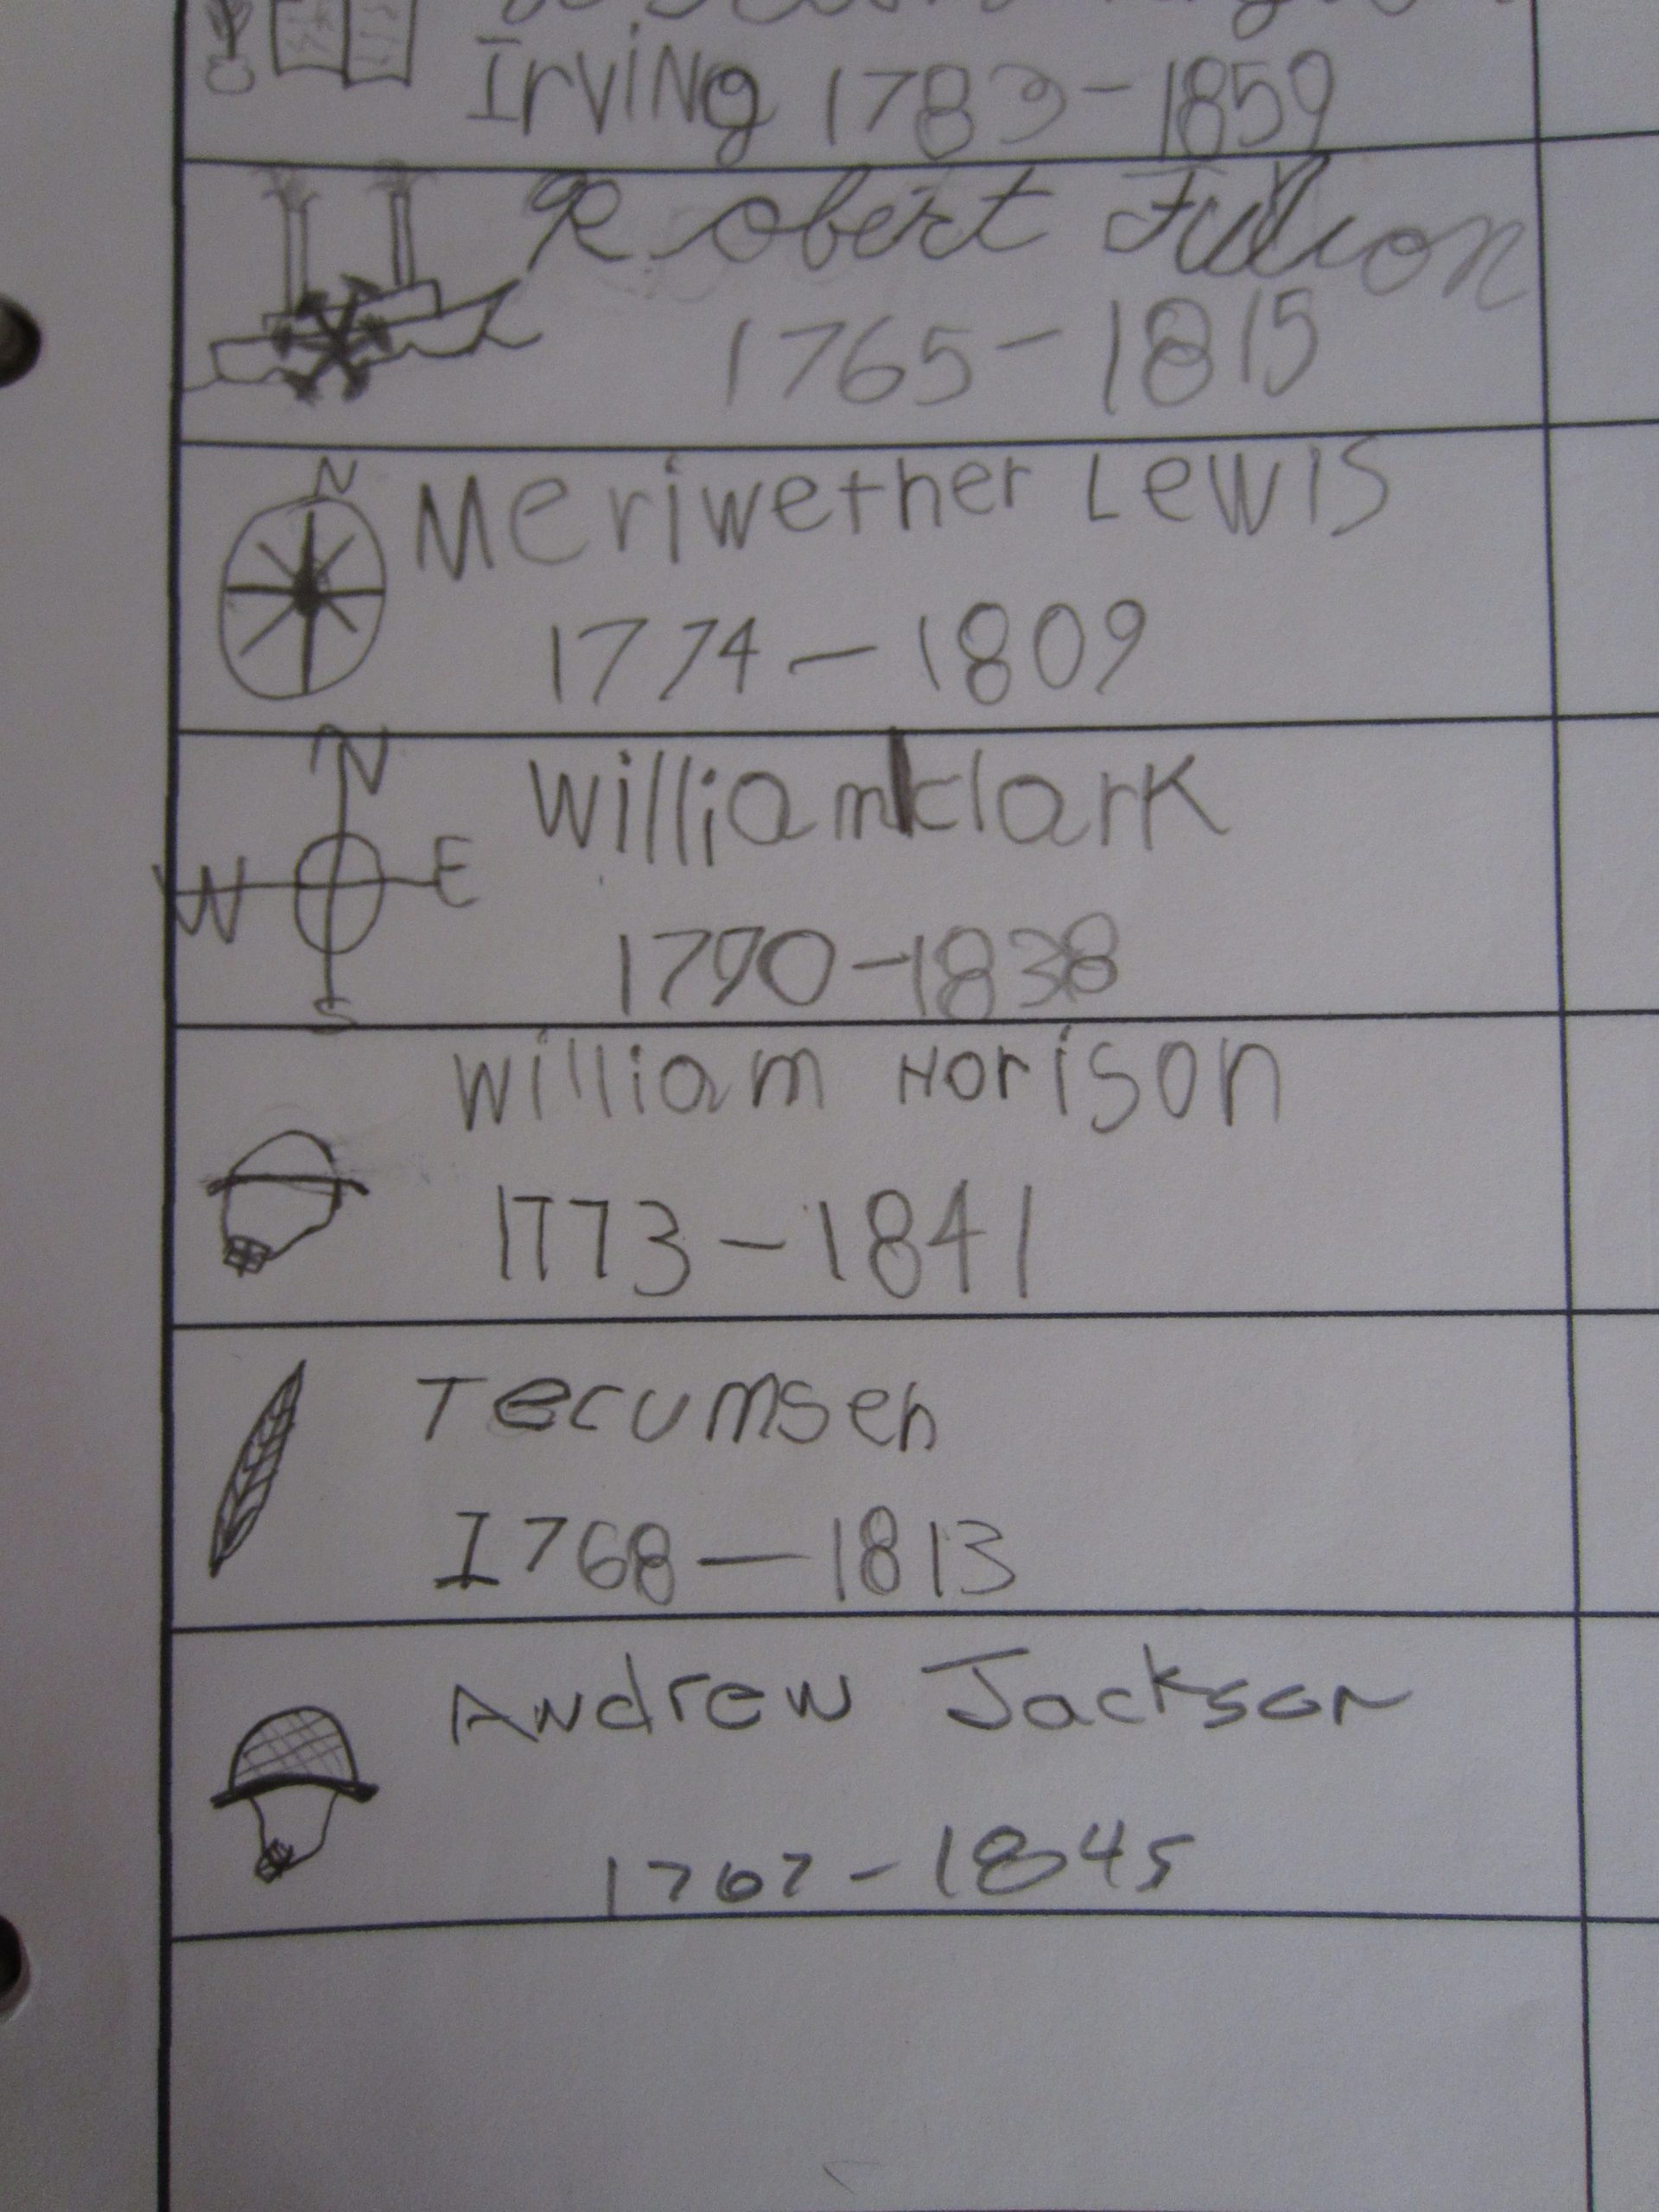 Irving 1783-1859
Robert Fulton
1765-1815
N
Meriwether Lewis
1774-1809
N
William Clark
W E
1790-1838
S
William Horison
1773-1841
Tecumseh
1768-1813
Andrew Jackson
1767-1845